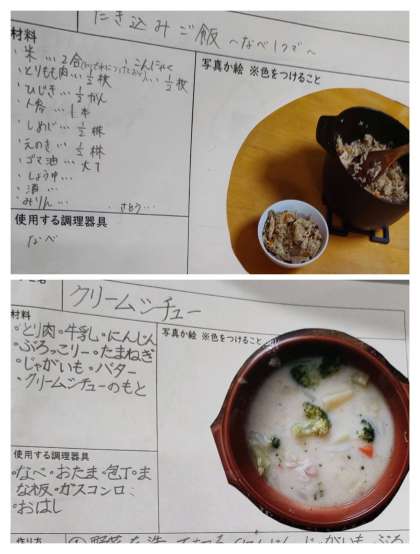 たき込みご飯 〜なべ1つで〜
材料
・米…2合
・こんにゃく…1/2枚
・とりもも肉…1/2枚
・ひじき…1/2かん
・人参…1本
・しめじ…1/2株
・えのき…1/2株
・ゴマ油…大1
・しょうゆ…
・酒…
・みりん…
・さとう…
使用する調理器具
なべ
写真か絵 ※色をつけること
クリームシチュー
材料
・とり肉・牛乳・にんじん
・ぶろっこりー・たまねぎ
・じゃがいも・バター
・クリームシチューのもと
写真か絵 ※色をつけること
使用する調理器具
・なべ・おたま・包丁・ま
な板・ガスコンロ
・おはし
作り方